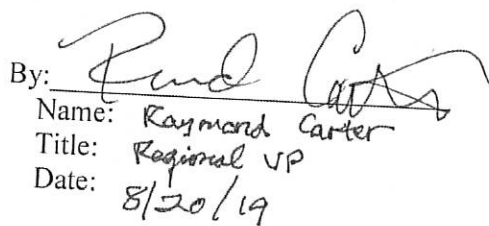 By: Raymond Carter
Name: Raymond Carter
Title: Regional VP
Date: 8/20/19